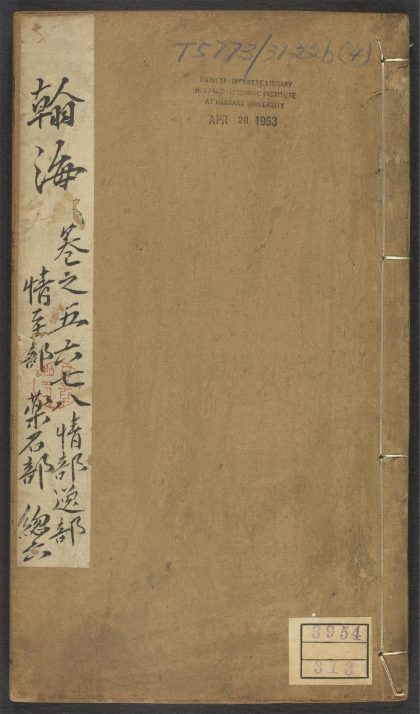 翰海
卷之五六七八 情部逆部
情至部 藥石部 總六
T5773/3122b(4)
CHINESE-JAPANESE LIBRARY
HARVARD-YENCHING INSTITUTE
AT HARVARD UNIVERSITY
APR 28 1953
3954
313